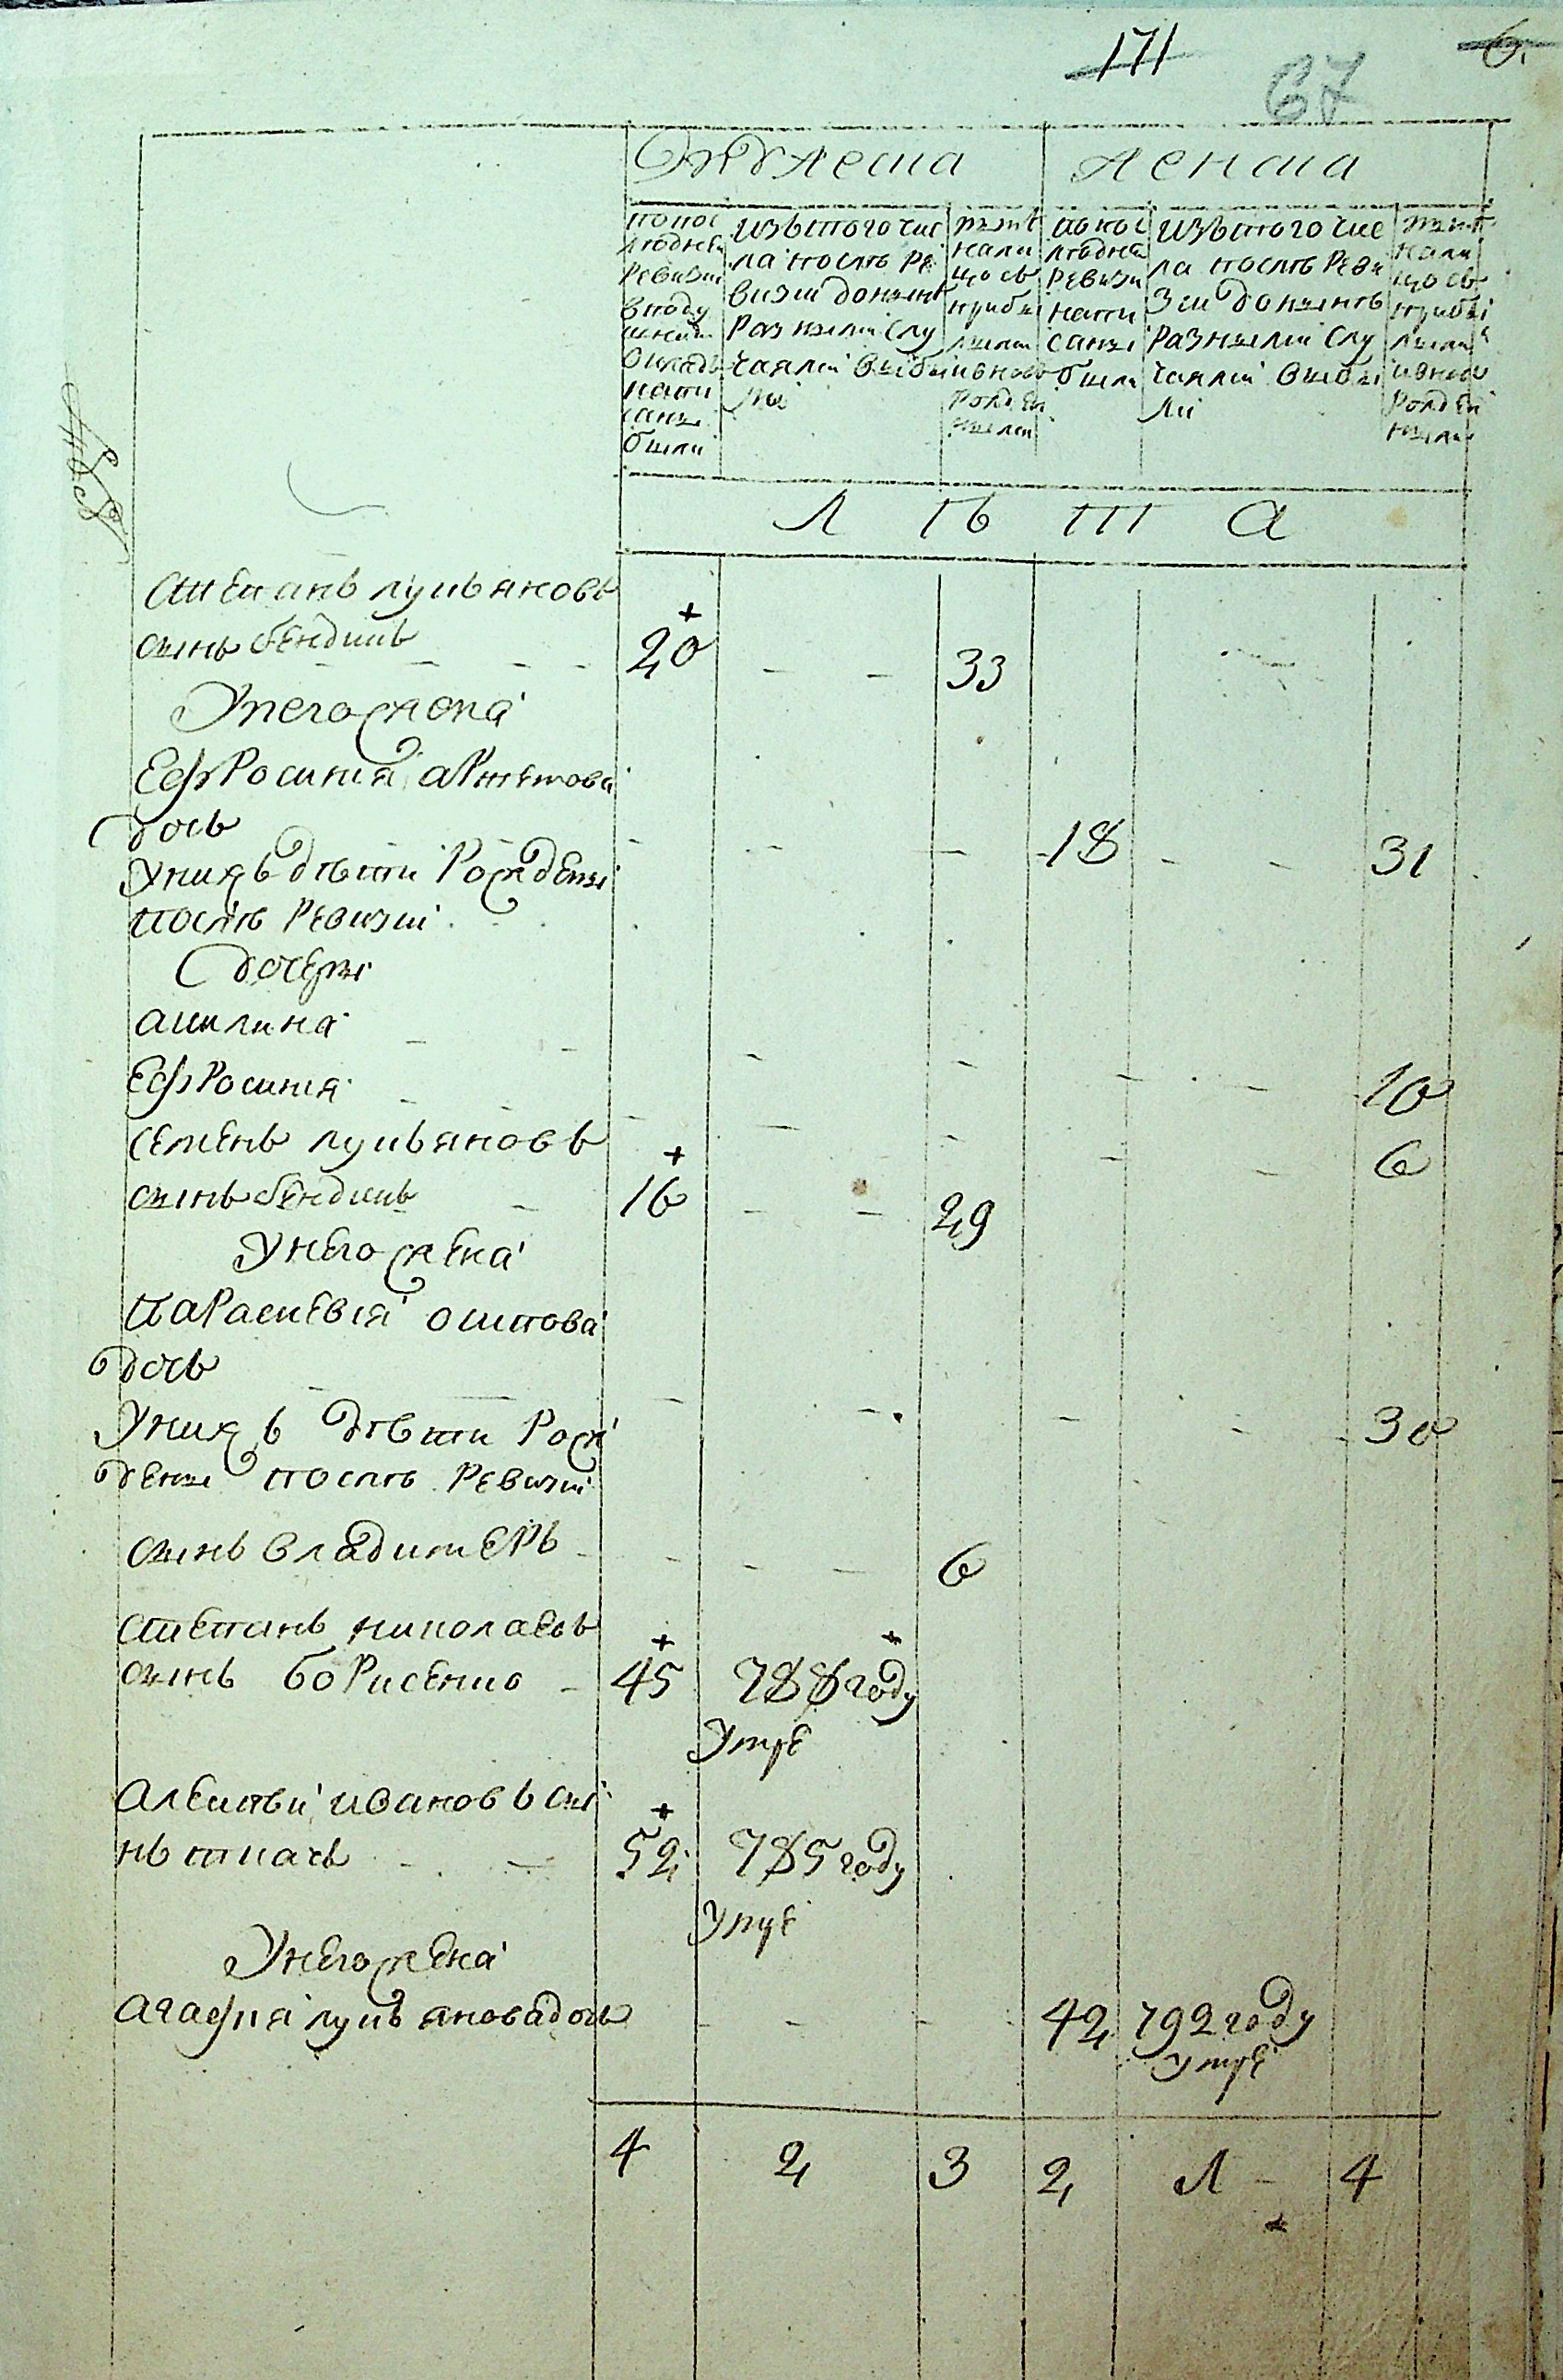 171
67
6.
Мужеска женска
по пос
леднеи
ревизии
в поду
шном
окладе
напи
саны
были
изъ того чис
ла после ре
визии доныне
разными слу
чаями выбы
ли
ныне
нали
цо съ
прибы
лыми
и вновь
рожден
ными
по пос
ледней
ревизи
напи
саны
были
изъ того чис
ла после реви
зии доныне
разными слу
чаями выбы
ли
ныне
нали
цо съ
прибы
лыми
и вновь
рожден
ными
Л ѣ т а
Степанъ лукьяновъ
сынъ бендикъ 20 33
У него жена
Ефросинья
дочь 18 31
У нихъ дѣти рожденны
послѣ ревизии
дочеры
акилина 10
Ефросиния 6
Семенъ лукьяновъ
сынъ бендикъ 16 29
У него жена
Параскевия остпова
дочь 30
У нихъ дѣти рож
дены послѣ ревизии
сынъ владимеръ 6
Степанъ николаевъ
сынъ борисенко 45 788 году
умре
Алексѣй ивановъ сы
нъ ткачь 52 785 году
умре
У него жена
агафия лукьянова дочь 42 792 году
умре
4 2 3 2 1 4